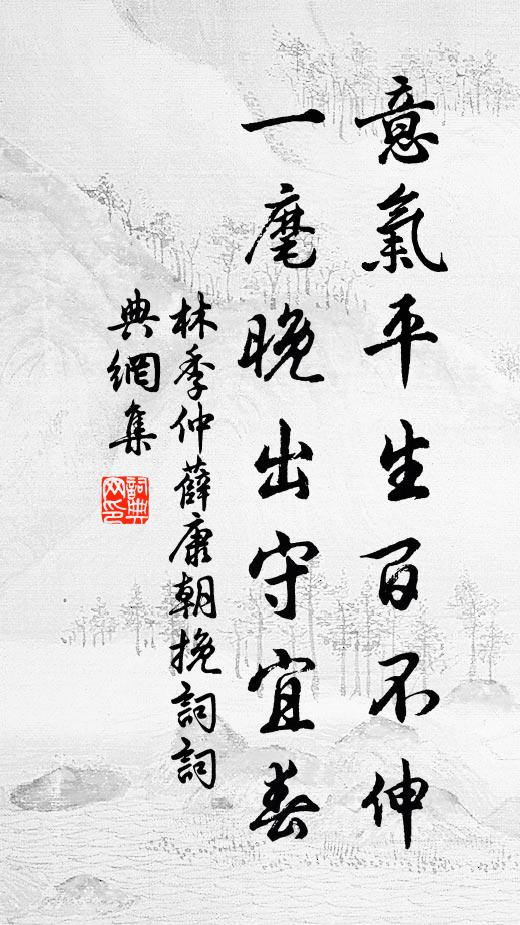 意氣平生百不伸
一麾晚出守宜春
林季仲薛康朝挽詞詞
典網集
詞典網印